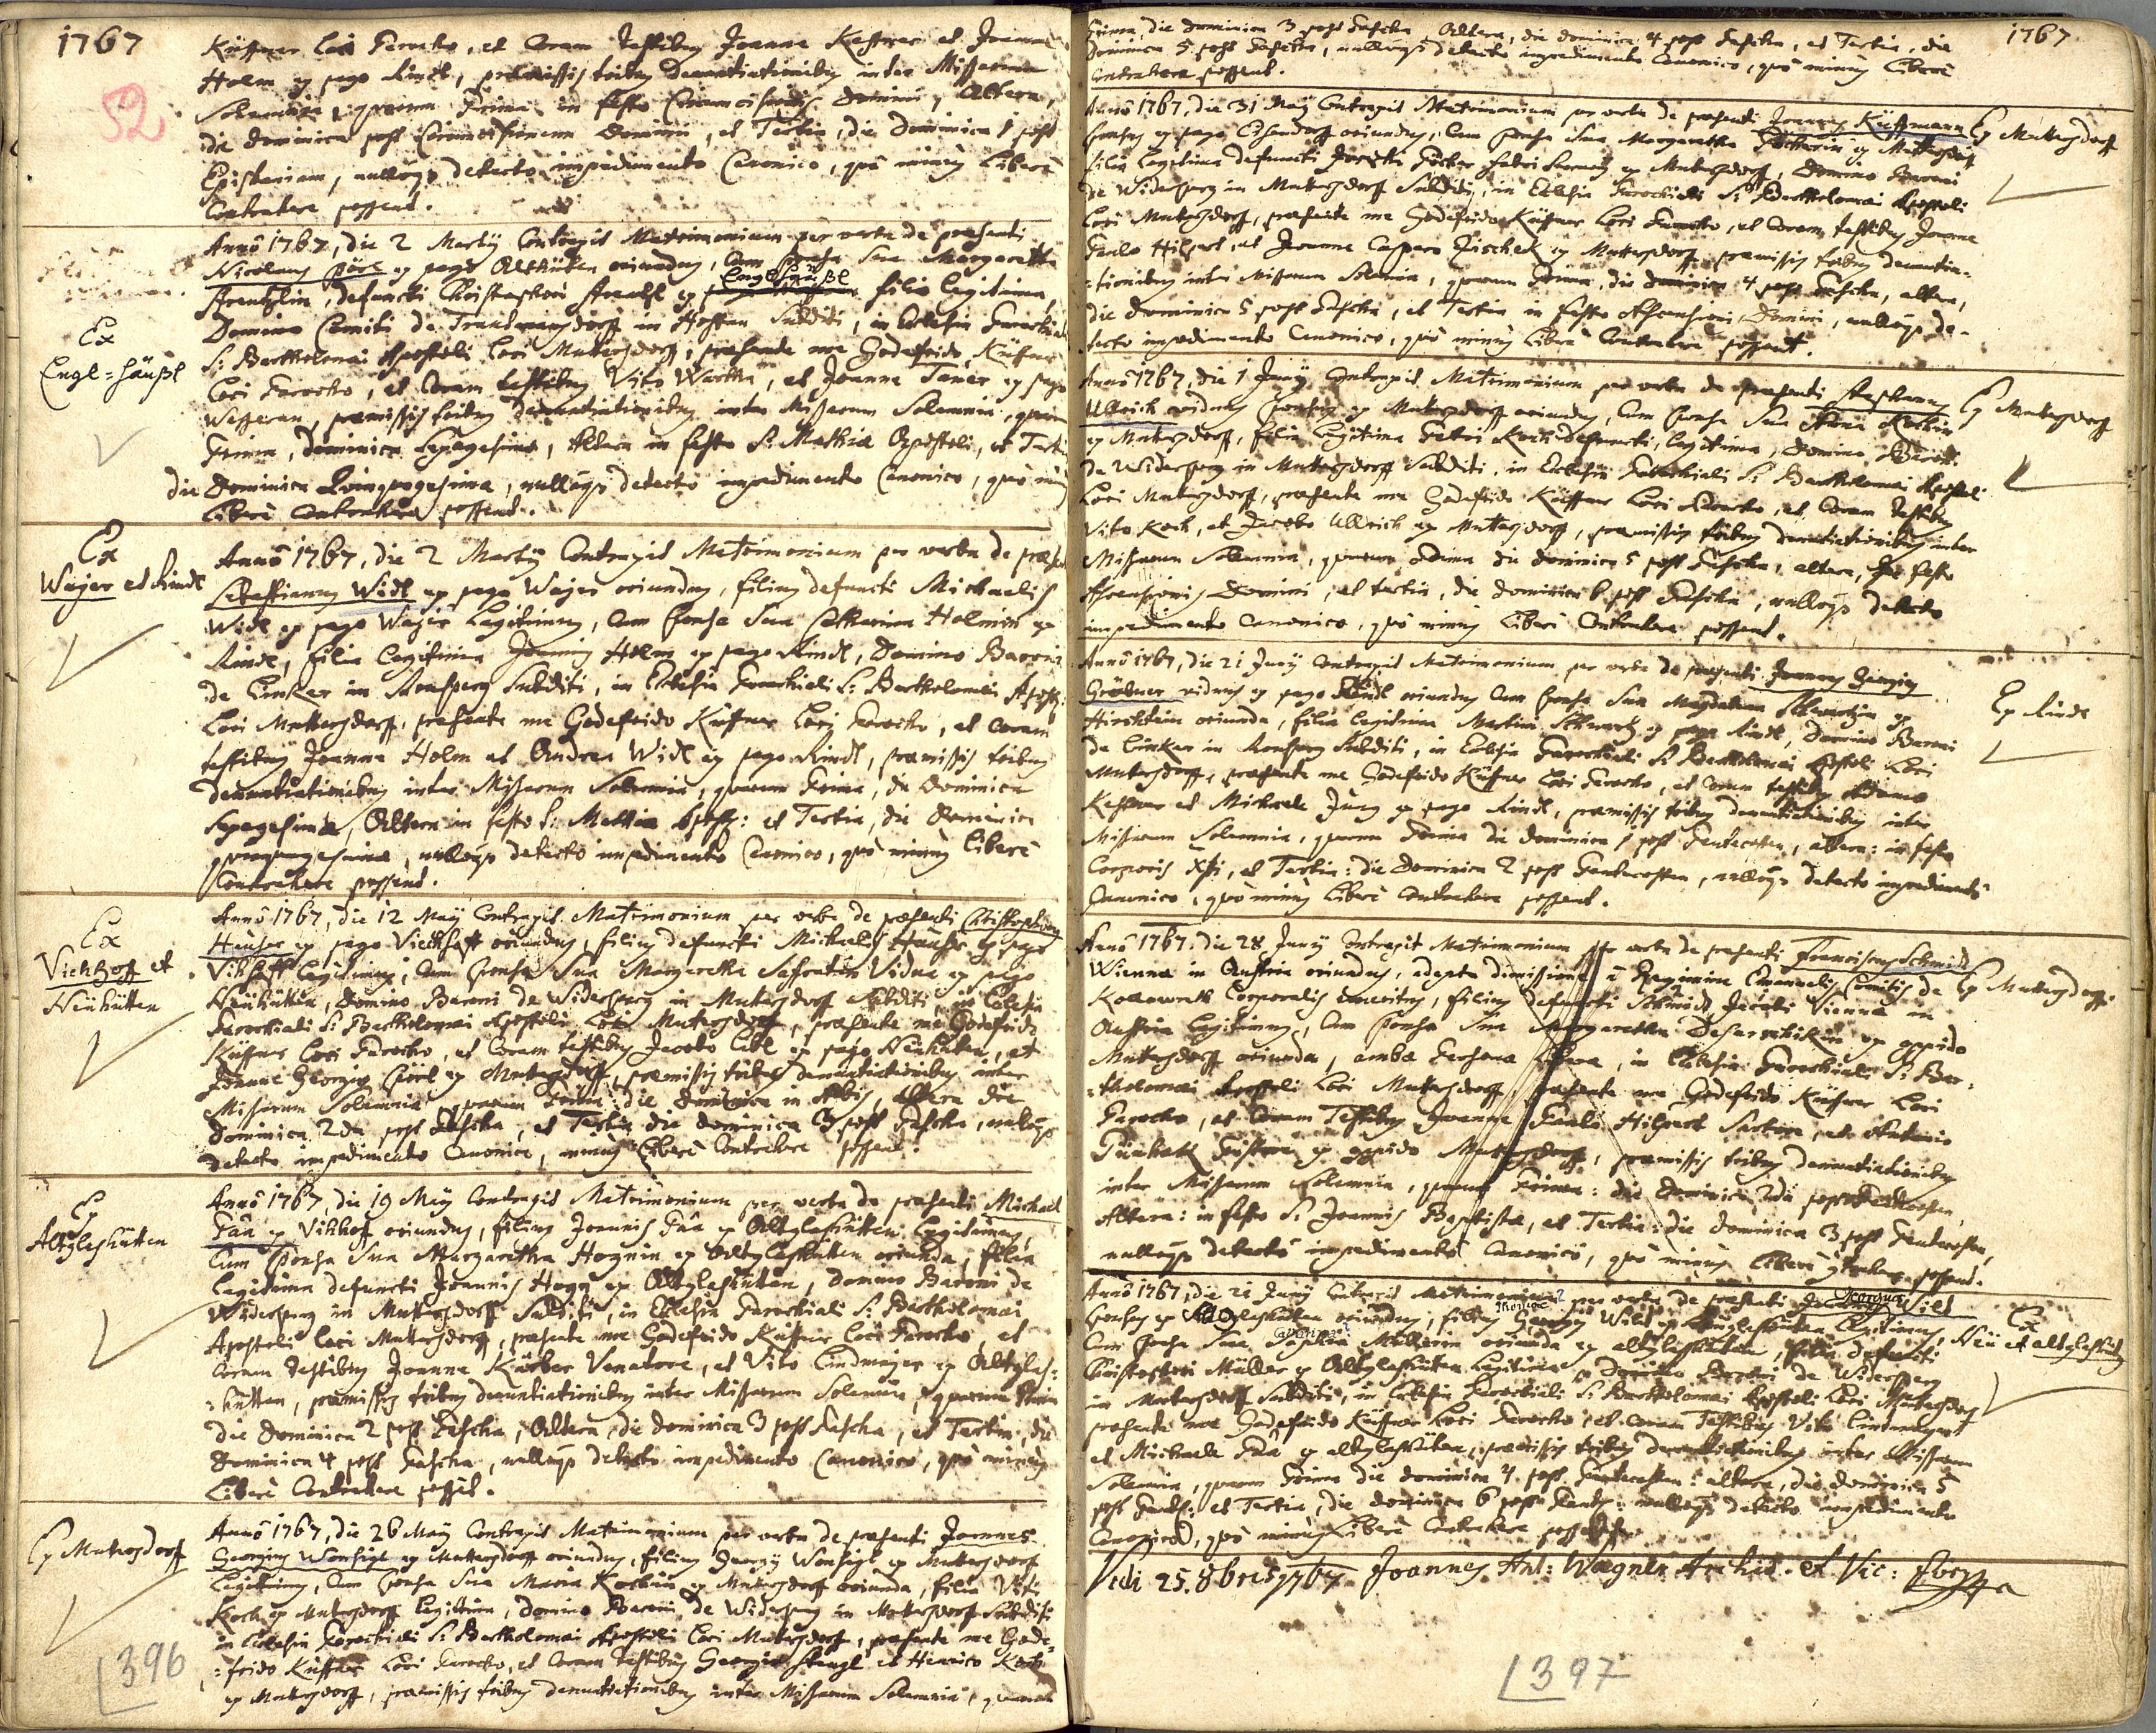 1767
52
Küffner Loci Parocho, et Coram testibus Joanne Kestner et Joanne
Holm ex pago Rindl, praemissis tribus denuntiationibus inter Missarum
Solemnia, quarum Prima in festo Circumcisionis Domini, Altera,
die Dominica post Circumcisionem Domini, et Tertia, die Dominica 1 post
Epiphaniam, nulloque detecto impedimento Canonico, quò minùs Liberè
Contrahere possent.
Ex
Engl=häußl
Annô 1767, die 2 Martÿ Contraxit Matrimonium per verba de praesenti
Nicolaus Pörl ex pago Althütten oriundus, Cum sponsa Sua Margaretha
Englhäußl
defuncti Christophori ex filia legitima
Domino Comiti de Trautmansdorff in Hostau Subditi, in Ecclesia Parochiali
S: Bartholomaei Apostoli Loci Muttersdorff, praesente me Godefrido Küffner
Loci Parocho, et Coram testibus Vito Wartha, et Joanne Taner ex pago
Wasserau, praemissis tribus denuntiationibus inter Missarum Solemnia, quarum
Prima, Dominica Sexagesima, Altera in festo S: Mathiae Apostoli, et Tertia
die Dominica Quinquagesima, nulloque detecto impedimento Canonico, quò minùs
Liberè Contrahere possent.
Ex
Wajer et Rindl
Annô 1767, die 2 Martÿ Contraxit Matrimonium per verba de praesenti
Sebastianus Widl ex pago Wajer oriundus, filius defuncti Michaelis
Widl ex pago Wajer Legitimus, Cum sponsa Sua Catharina Holmin ex
Rindl, filia Legitima Joannis Holm ex pago Rindl, Domino Baroni
de Linker in Ronsperg Subditi, in Ecclesia Parochiali S: Bartholomaei Apost:
Loci Muttersdorff, praesente me Godefrido Küffner Loci Parocho, et Coram
testibus Joanne Holm et Andrea Widl ex pago Rindl, praemissis tribus
denuntiationibus inter Missarum Solemnia, quarum Prima, die Dominica
Sexagesima, Altera in festo S: Mathiae Apost: et Tertia, die Dominica
quinquagesima, nulloque detecto impedimento Canonico, quò minùs Liberè
Contrahere possent.
Ex
Viehhoff et
Neuhütten
Annô 1767, die 12 Maÿ Contraxit Matrimonium per verba de praesenti Christophorus
Hauser ex pago Viechhoff oriundus, filius defuncti Michaelis Hauser ex pago
Vihhoff Legitimus, Cum sponsa Sua Margaretha Vidua ex pago
Neühütten, Domino Baroni de Widersperg in Muttersdorff Subditi, in Ecclesia
Parochiali S: Bartholomaei Apostoli Loci Muttersdorff, praesente me Godefrido
Küffner Loci Parocho, et Coram testibus Jacobo Libl ex pago Neühütten, et
Joanne Georgio Pörl ex Muttersdorff, praemissis tribus denuntiationibus inter
Missarum Solemnia quarum Prima: die Dominica in Albis, Altera die
Dominica 2da post Pascha, et Tertia die dominica 3 post Pascha, nulloque
detecto impedimento Canonico, minùs Liberè Contrahere possent.
Ex
Altgleshütten
Annô 1767, die 19 Maÿ Contraxit Matrimonium per verba de praesenti Michael
ex Vihhoff oriundus, filius Joannis ex Altgleshütten Legitimus,
Cum sponsa Sua Margaretha Hognin ex Altgleshütten oriunda, filia
Legitima defuncti Joannis Hogn ex Altgleshütten, Domino Baroni de
Widersperg in Muttersdorff Subditi, in Ecclesia Parochiali S: Bartholomaei
Apostoli Loci Muttersdorff, praesente me Godefrido Küffner Loci Parocho, et
Coram testibus Joanne Körber Venatore, et Vito Lindmajer ex Altgles=
=hütten, praemissis tribus denuntiationibus inter Missarum Solemnia, quarum Prima
Die Dominica 2 post Pascha, Altera, die Dominica 3 post Pascha, et Tertia, die
Dominica 4 post Pascha, nulloque detecto impedimento Canonico, quò minùs
Liberè Contrahere possit.
Ex Muttersdorff
Annô 1767, die 26 Maÿ Contraxit Matrimonium per verba de praesenti Joannes
Georgius Wonsigl ex Muttersdorff oriundus, filius Georgÿ Wonsigl ex Muttersdorff
Legitimus, Cum sponsa Sua Maria Kochin ex Muttersdorff oriunda, filia Viti
Koch ex Muttersdorff Legitima, Domino Baroni de Widersperg in Muttersdorff Subditi
in Ecclesia Parochiali S: Bartholomaei Apostoli Loci Muttersdorff, praesente me Gode=
=frido Küffner Loci Parocho, et Coram testibus Georgio Stengl et Henrico Koch
ex Muttersdorff, praemissis tribus denuntiationibus inter Missarum Solemnia, quarum
396
1767
Prima, die dominica 3 post Pascha, Altera, die dominica 4 post Pascha, et Tertia, die
Dominica 5 post Pascha, nulloque detecto impedimento Canonico, quò minùs Liberè
Contrahere possent.
Ex Muttersdorff
Annô 1767, die 31 Maÿ Contraxit Matrimonium per verba de praesenti Joannes Küffmann
sponsus ex pago oriundus, Cum sponsa Sua Margaretha ex Muttersdorff
filia Legitima defuncti ex Muttersdorff, Domino Baroni
de Widersperg in Muttersdorff Subditi, in Ecclesia Parochiali S: Bartholomaei Apostoli
Loci Muttersdorff, praesente me Godefrido Küffner Loci Parocho, et Coram testibus Joanne
Paulo Hilpert, et Joanne Casparo Zischek ex Muttersdorff, praemissis tribus denuntia=
=tionibus inter Missarum Solemnia, quarum Prima, die Dominica 4 post Pascha, altera,
die Dominica 5 post Pascha, et Tertia in festo Ascensionis Domini, nulloque de=
tecto impedimento Canonico, quò minùs Liberè Contrahere possent.
Ex Muttersdorff
Annô 1767, die 1 Junÿ Contraxit Matrimonium per verba de praesenti Stephanus
Ullrich viduus sponsus ex Muttersdorff oriundus, Cum sponsa Sua Anna Kochin
ex Muttersdorff, filia Legitima Petri Koch defuncti, Legitima, Domino Baroni
de Widersperg in Muttersdorff Subditi, in Ecclesia Parochiali S: Bartholomaei Apostoli
Loci Muttersdorff, praesente me Godefrido Küffner Loci Parocho, et Coram testibus
Vito Koch, et Jacobo Ullrich ex Muttersdorff, praemissis tribus denuntiationibus inter
Missarum Solemnia, quarum Prima die Dominica 5 post Pascha, altera, In festo
Ascensionis Domini, et tertia, die dominica 6 post Pascha, nulloque detecto
impedimento Canonico, quò minùs Liberè Contrahere possent.
Ex Rindl
Annô 1767, die 21 Junÿ Contraxit Matrimonium per verba de praesenti Joannes Georgius
Gröbner viduus ex pago Rindl oriundus Cum sponsa Sua Magdalena Schwartzin ex
Hirschstein oriunda, filia Legitima Martini Schwartz ex pago Rindl, Domino Baroni
de Linker in Ronsperg Subditi, in Ecclesia Parochiali S: Bartholomaei Apostoli Loci
Muttersdorff, praesente me Godefrido Küffner Loci Parocho, et Coram testibus Adamo
Kestner et Michaele Jung ex pago Rindl, praemissis tribus denuntiationibus inter
Missarum Solemnia, quarum Prima die dominica 1 post Pentecosten, altera: in festo
Corporis Xsti, et Tertia: die Dominica 2 post Pentecosten, nulloque detecto impedimento
Canonico, quò minùs Liberè Contrahere possent.
Ex Muttersdorff
Annô 1767, die 28 Junÿ Contraxit Matrimonium per verba de praesenti Franciscus Schmidt
Wienna in Austria oriundus, adepta dimissione à Regimine Emanuelis Comitis de
Kollowrath Corporalis emeritus, filius defuncti Schmidt Jacobi Vienna in
Austria Legitimus, Cum sponsa Sua Margaretha ex oppido
Muttersdorff oriunda, ambae Personae Liberae, in Ecclesia Parochiali S: Bar=
=tholomaei Apostoli Loci Muttersdorff praesente me Godefrido Küffner Loci
Parocho, et Coram Testibus Joanne Paulo Hilpert Sartore, et Antonio
Pistore ex oppido Muttersdorff, praemissis tribus denuntiationibus
inter Missarum Solemnia, quarum Prima: die Dominica 2da post Pentecosten,
Altera: in festo S: Joannis Baptistae, et Tertia: die dominica 3 post Pentecosten,
nulloque detecto impedimento Canonico, quò minùs Liberè contrahere possent.
Ex
Neu et altgleshütten
Annô 1767, die 21 Junÿ Contraxit Matrimonium per verba de praesenti Georgius Wild
sponsus ex Altgleshütten oriundus, filius Georgÿ Wild ex Neugleshütten Legitimus,
Cum sponsa Sua Catharina Müllerin oriunda ex altgleshütten, filia defuncti
Christophori Müller ex Altgleshütten Legitima Domino Baroni de Widersperg
in Muttersdorff Subditi, in Ecclesia Parochiali S: Bartholomaei Apostoli Loci Muttersdorff
praesente me Godefrido Küffner Loci Parocho, et Coram Testibus Vito Lindmajer
et Michaele ex altgleshütten, praemissis tribus denuntiationibus inter Missarum
Solemnia, quarum Prima die dominica 4. post Pentecosten: altera, die dominica 5
post Pent: et Tertia, die dominica 6 post Pent: nulloque detecto impedimento
Canonico, quò minùs Liberè Contrahere
Vidi 25. 8bris 1767. Joannes Ant: Wagner Archid. et Vic:
397